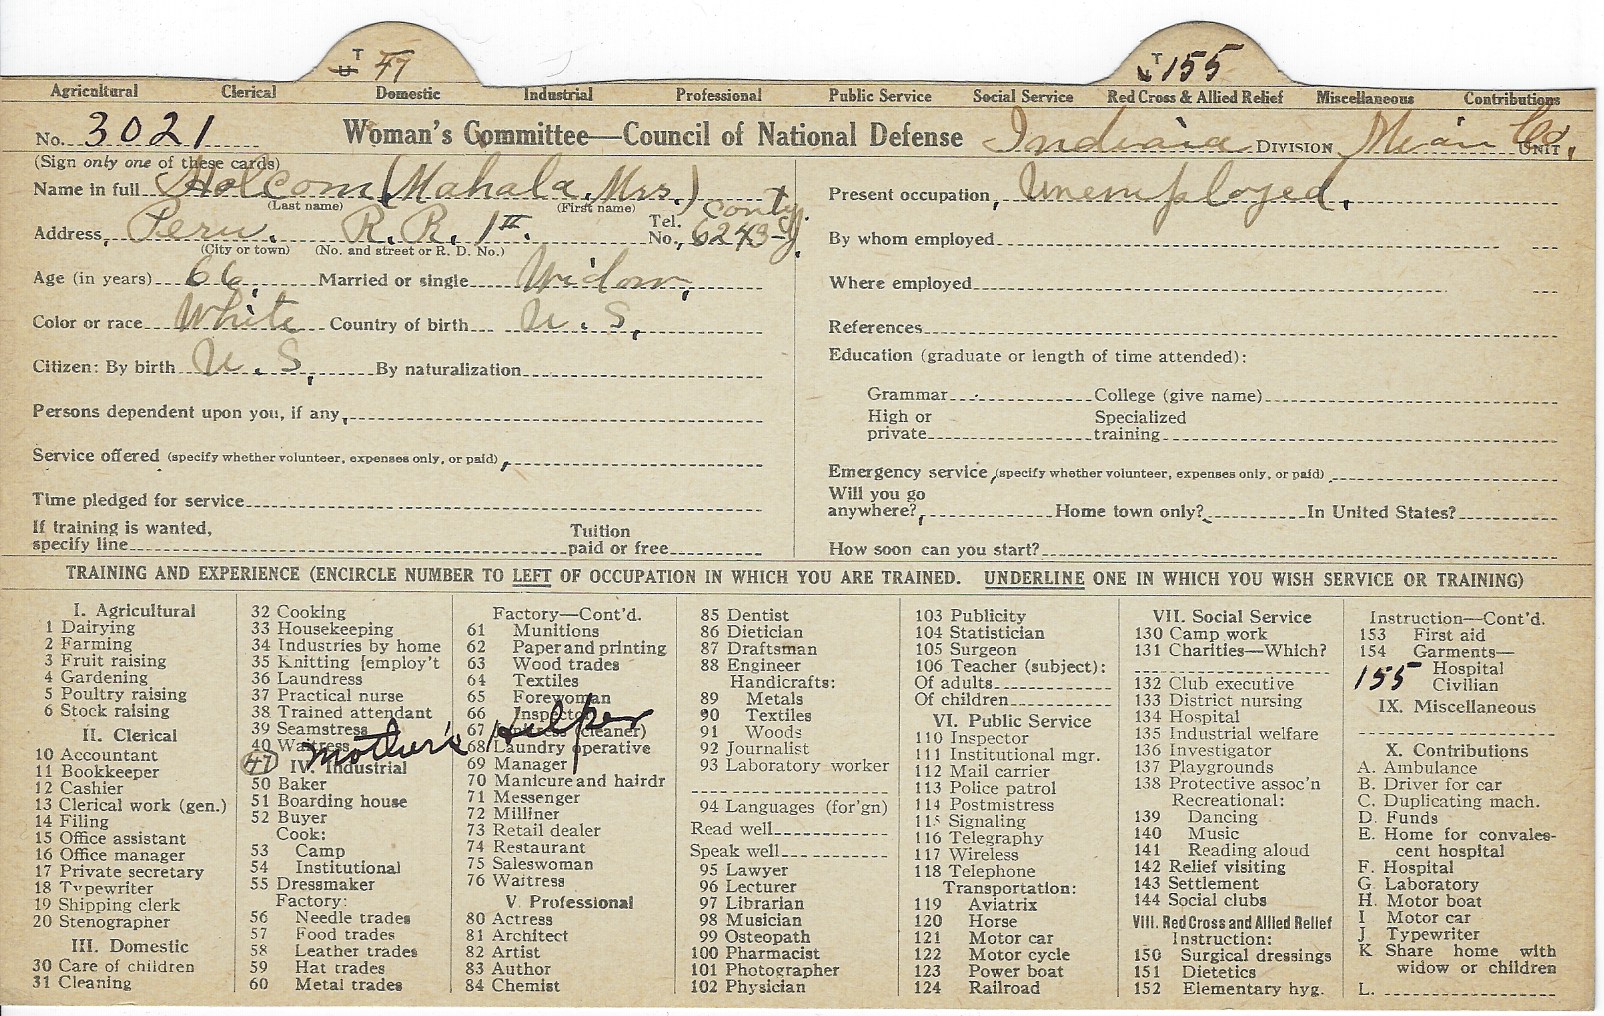 T 47
T 155
Agricultural Clerical Domestic Industrial Professional Public Service Social Service Red Cross & Allied Relief Miscellaneous Contributions
No. 3021 Woman's Committee—Council of National Defense Indiana DIVISION Co. UNIT
(Sign only one of these cards)
Name in full Holcom (Mahala, Mrs.)
(Last name) (First name)
Address, Peru. R. R. 1 Tel. No.,
(City or town) (No. and street or R. D. No.)
Age (in years) 66. Married or single Widow,
Color or race White Country of birth U. S.
Citizen: By birth U. S. By naturalization
Persons dependent upon you, if any,
Service offered (specify whether volunteer, expenses only, or paid),
Time pledged for service
If training is wanted,
specify line
Tuition
paid or free
Present occupation, Unemployed.
By whom employed
Where employed
References
Education (graduate or length of time attended):
Grammar College (give name)
High or private Specialized training
Emergency service, (specify whether volunteer, expenses only, or paid)
Will you go
anywhere?, Home town only? In United States?
How soon can you start?
TRAINING AND EXPERIENCE (ENCIRCLE NUMBER TO LEFT OF OCCUPATION IN WHICH YOU ARE TRAINED. UNDERLINE ONE IN WHICH YOU WISH SERVICE OR TRAINING)
I. Agricultural
1 Dairying
2 Farming
3 Fruit raising
4 Gardening
5 Poultry raising
6 Stock raising
II. Clerical
10 Accountant
11 Bookkeeper
12 Cashier
13 Clerical work (gen.)
14 Filing
15 Office assistant
16 Office manager
17 Private secretary
18 Typewriter
19 Shipping clerk
20 Stenographer
III. Domestic
30 Care of children
31 Cleaning
32 Cooking
33 Housekeeping
34 Industries by home
35 Knitting [employ't
36 Laundress
37 Practical nurse
38 Trained attendant
39 Seamstress
40 Waitress
47 Mother's Helper
IV. Industrial
50 Baker
51 Boarding house
52 Buyer
Cook:
53 Camp
54 Institutional
55 Dressmaker
Factory:
56 Needle trades
57 Food trades
58 Leather trades
59 Hat trades
60 Metal trades
Factory—Cont'd.
61 Munitions
62 Paper and printing
63 Wood trades
64 Textiles
65 Forewoman
66 Inspector
67 (cleaner)
68 Laundry operative
69 Manager
70 Manicure and hairdr
71 Messenger
72 Milliner
73 Retail dealer
74 Restaurant
75 Saleswoman
76 Waitress
V. Professional
80 Actress
81 Architect
82 Artist
83 Author
84 Chemist
85 Dentist
86 Dietician
87 Draftsman
88 Engineer
Handicrafts:
89 Metals
90 Textiles
91 Woods
92 Journalist
93 Laboratory worker
94 Languages (for'gn)
Read well
Speak well
95 Lawyer
96 Lecturer
97 Librarian
98 Musician
99 Osteopath
100 Pharmacist
101 Photographer
102 Physician
103 Publicity
104 Statistician
105 Surgeon
106 Teacher (subject):
Of adults
Of children
VI. Public Service
110 Inspector
111 Institutional mgr.
112 Mail carrier
113 Police patrol
114 Postmistress
115 Signaling
116 Telegraphy
117 Wireless
118 Telephone
Transportation:
119 Aviatrix
120 Horse
121 Motor car
122 Motor cycle
123 Power boat
124 Railroad
VII. Social Service
130 Camp work
131 Charities—Which?
132 Club executive
133 District nursing
134 Hospital
135 Industrial welfare
136 Investigator
137 Playgrounds
138 Protective assoc'n
Recreational:
139 Dancing
140 Music
141 Reading aloud
142 Relief visiting
143 Settlement
144 Social clubs
VIII. Red Cross and Allied Relief
Instruction:
150 Surgical dressings
151 Dietetics
152 Elementary hyg.
Instruction—Cont'd.
153 First aid
154 Garments—
Hospital
155 Civilian
IX. Miscellaneous
X. Contributions
A. Ambulance
B. Driver for car
C. Duplicating mach.
D. Funds
E. Home for convales-
cent hospital
F. Hospital
G. Laboratory
H. Motor boat
I Motor car
J Typewriter
K Share home with
widow or children
L.